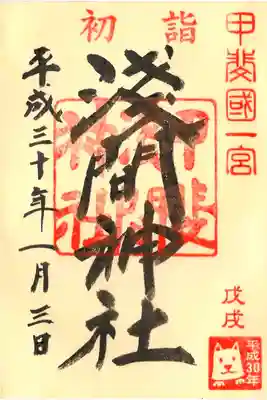 初詣
甲斐國一宮
浅間神社
平成三十年一月三日
戊戌
平成30年